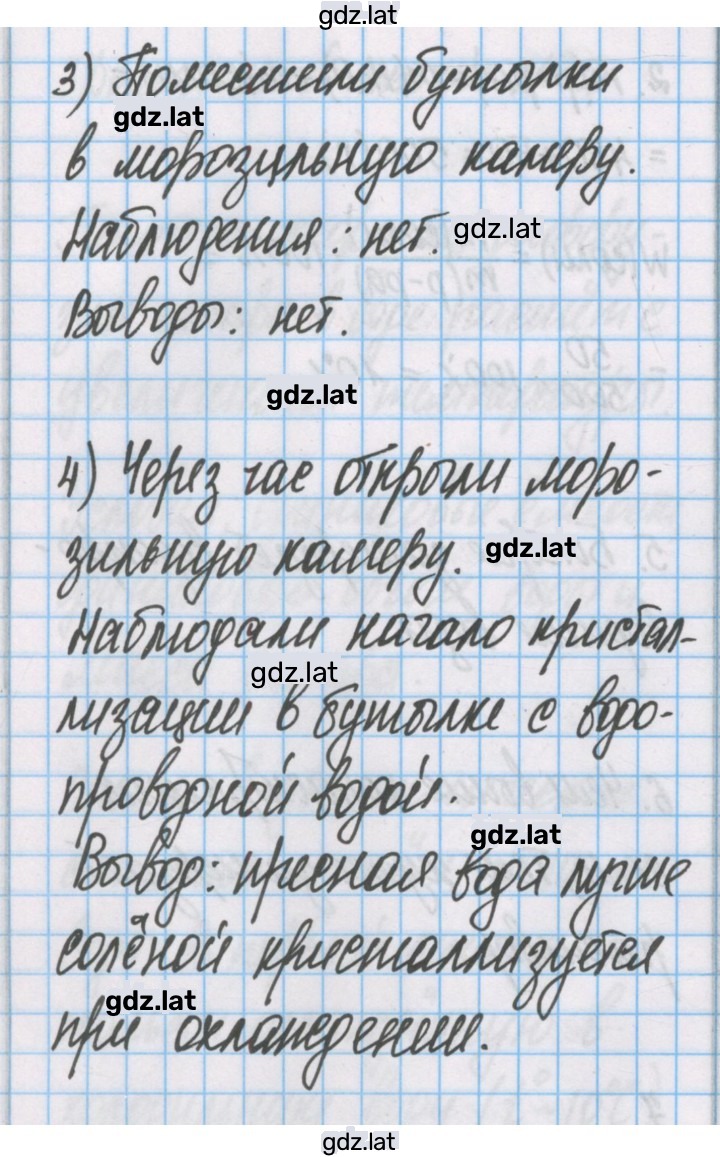 gdz.lat
3) Поместили бутылки
gdz.lat
в морозильную камеру.
Наблюдения: нет.
gdz.lat
Выводы: нет.
gdz.lat
4) Через час открыли моро-
зильную камеру.
gdz.lat
Наблюдали начало кристал-
gdz.lat
лизации в бутылке с водо-
проводной водой.
gdz.lat
Вывод: пресная вода лучше
солёной кристаллизуется
gdz.lat
при охлаждении.
gdz.lat